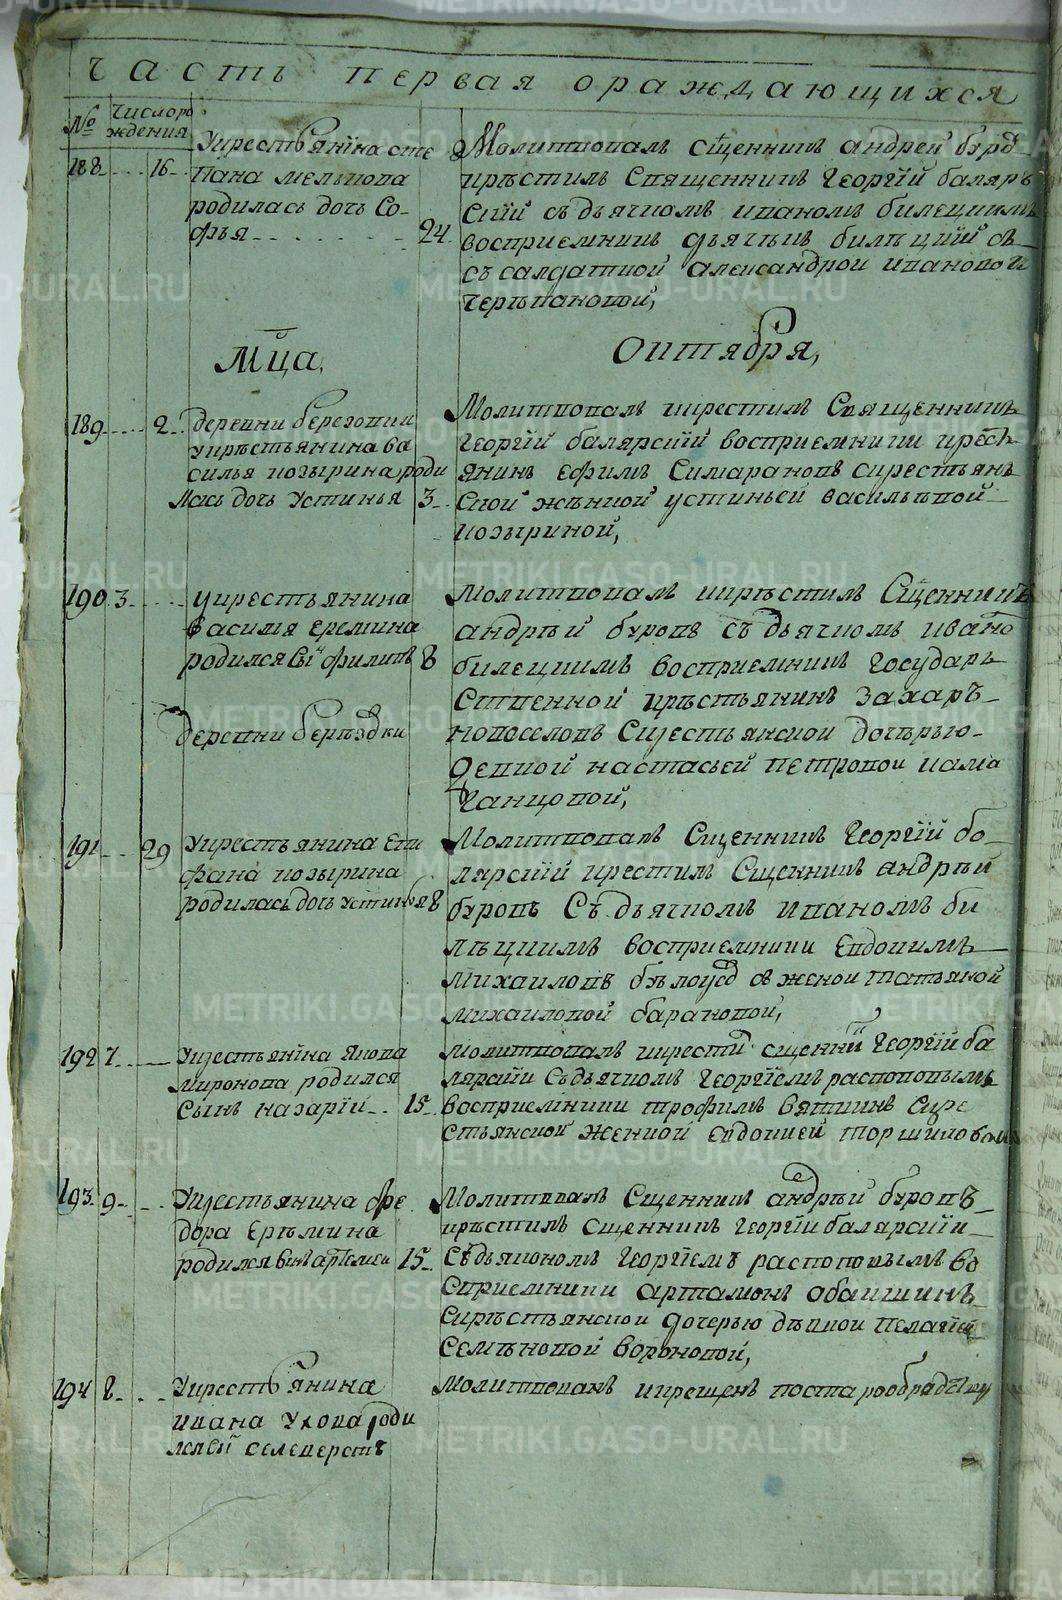 часть первая ораждающихся
№ число рождения
188 16 Укрестьянина сте
пана мелкова
родилась дочь Со-
фья 24
Молитвовалъ сщенникъ андрей буро
крѣстилъ Священникъ Георгій баляръ
скій съ дьячкомъ иваномъ билецкимъ
восприемникъ дьячекъ билѣцкій съ
съ салдаткой александрой ивановой
черѣпановой,
Мца Октября,
189 2 деревни березовки
укрѣстьянина ва
силья козырина роди
лась дочь устинья 3
Молитвовалъ икрестилъ Священникъ
георгій балярскій восприемники крестъ
янинъ ефимъ Симарановъ скрестьянъ
ской жѣнкой устиньей васильѣвой
козыриной,
190 3 укрестьянина
василія еремина
родился сы филипъ 8
деревни берѣзвки
Молитвовалъ икрѣстилъ Сщенникъ
андрѣй буровъ съ дьячкомъ ивано
билецкимъ восприемникъ государь
ственной крѣстьянинъ захаръ
новоселовъ скрестьянскои дочѣрью
девкой настасьей петровои кама
ганцовой,
191 29 Укрестьянина Епи
фана козырина
родилась дочь устинья 8
Молитвовалъ Сщенникъ Георгій бо-
лярскій крестилъ Сщенникъ андрѣй
буровъ Съ дьячкомъ иваномъ би
лѣцкимъ восприемники Евдокимъ
михаиловъ бѣлоусо съ женои татьяной
михаиловой барановой,
192 7 Укрестьянина якова
миронова родился
сынъ назарій 15
молитвовалъ икрестил сщенникъ Георгій ба
лярскій съ дьячкомъ Георгіемъ распоповымъ
восприемники трофимъ вяткинъ скре
стьянской женкой евдокией торшиловой
193 9 Укрестьянина фе
дора ерѣмина
родился снъ артемеи 15
Молитвовалъ Сщенникъ андрѣй буровъ
крѣстилъ сщенникъ георгій балярскій
Съ дьякономъ георгіемъ распоповымъ во
сприемники артамонъ обаишинъ
скрѣстьянской дочерью дѣвкой пелагіей
Семѣновой вороновой,
194 8 Укрестьянина
ивана ухова роди
лся селеверстъ
молитвованъ икрещенъ постарообрядчеству